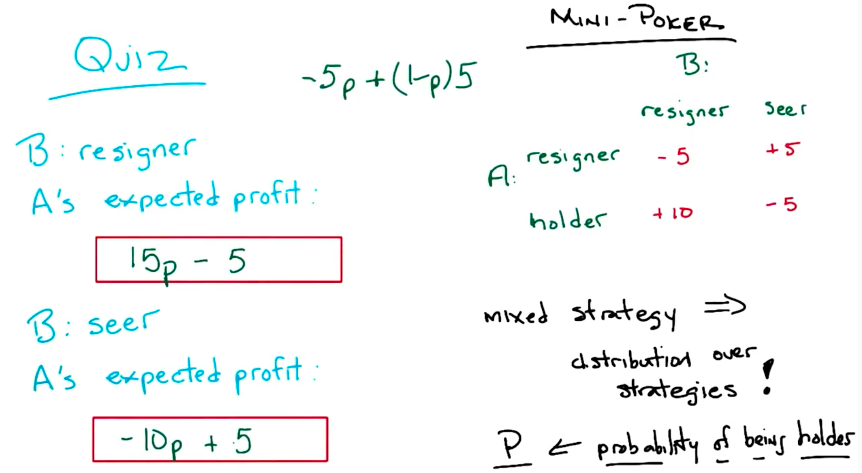 Quiz
-5p + (1-p)5
B: resigner
A's expected profit:
15p - 5
B: seer
A's expected profit:
-10p + 5
MINI-POKER
B:
resigner seer
A: resigner -5 +5
holder +10 -5
mixed strategy ⇒
distribution over
strategies !
P ← probability of being holder